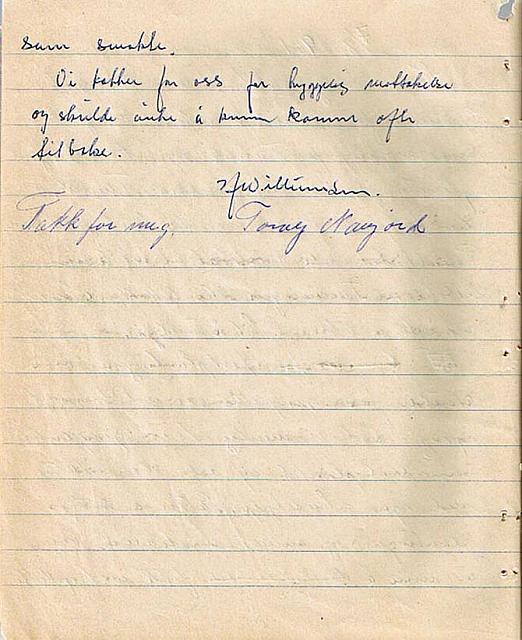 som smakte.
Vi takker for oss for hyggelig mottakelse
og skulde ønske å kunne komme ofte
tilbake.
Williumsen.
Takk for meg. Torvey Navjord